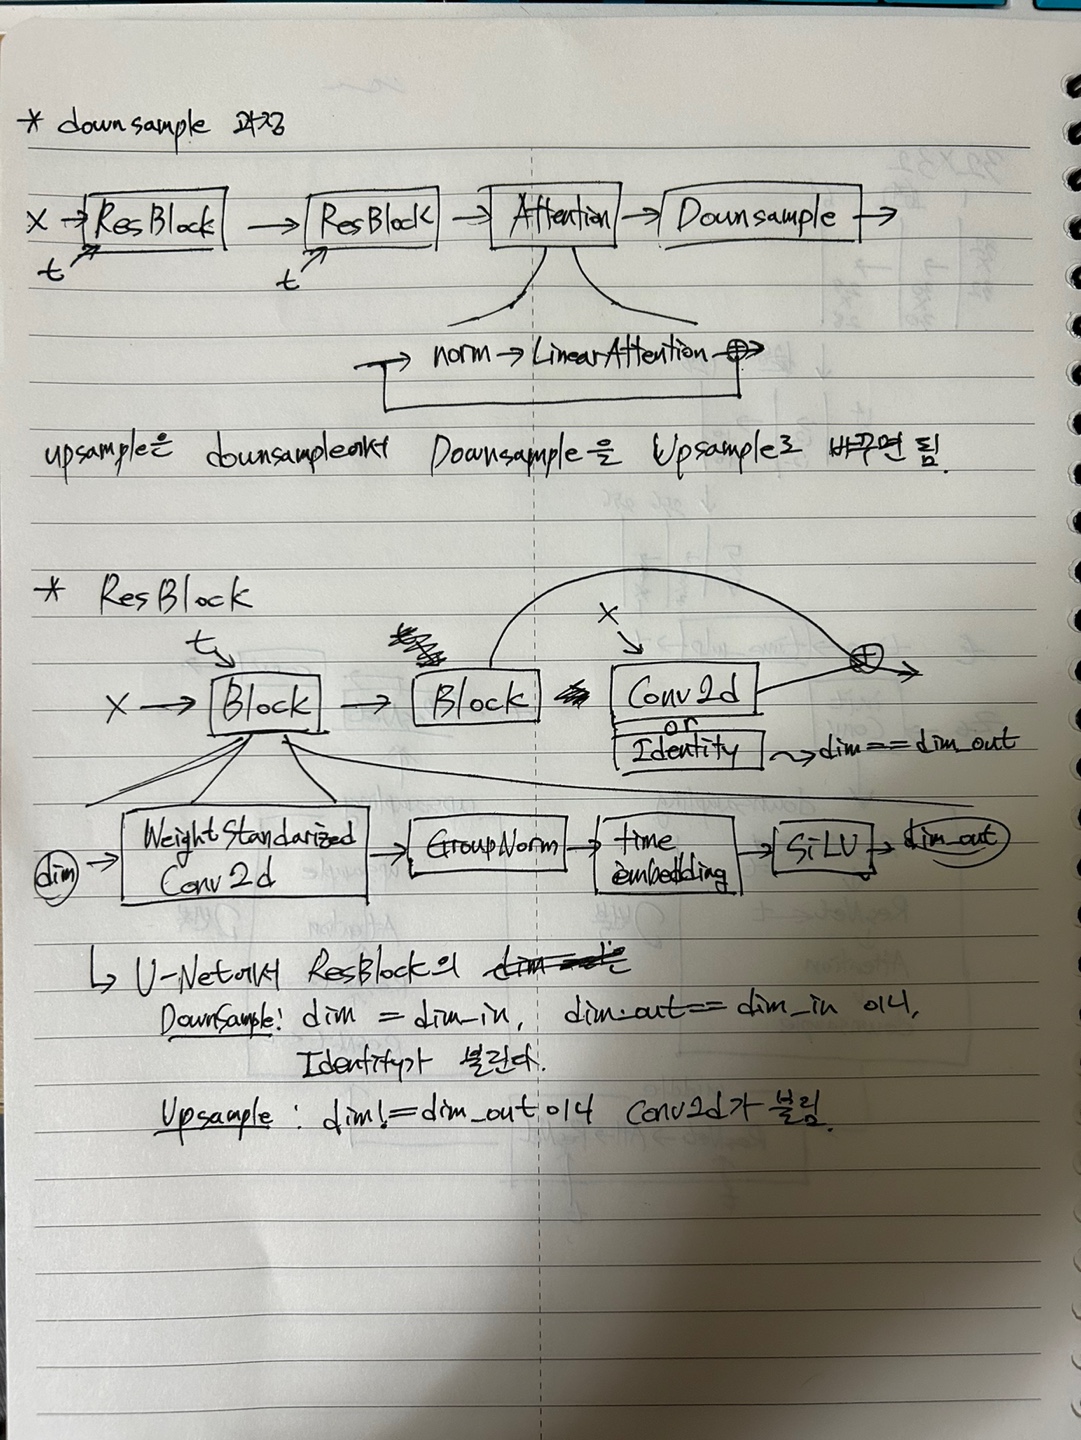 * downsample 과정
X → ResBlock → ResBlock → Attention → Downsample →
t t
→ norm → LinearAttention ⊕→
upsample은 downsample에서 Downsample을 Upsample로 바꾸면 됨.
* ResBlock
t X
X → Block → Block Conv2d ⊕→
or
Identity → dim == dim_out
dim → WeightStandarized Conv2d → GroupNorm → time embedding → SiLU → dim_out
↳ U-Net에서 ResBlock의
DownSample: dim = dim_in, dim_out == dim_in 이니,
Identity가 불린다.
Upsample : dim != dim_out 이니 Conv2d가 불림.